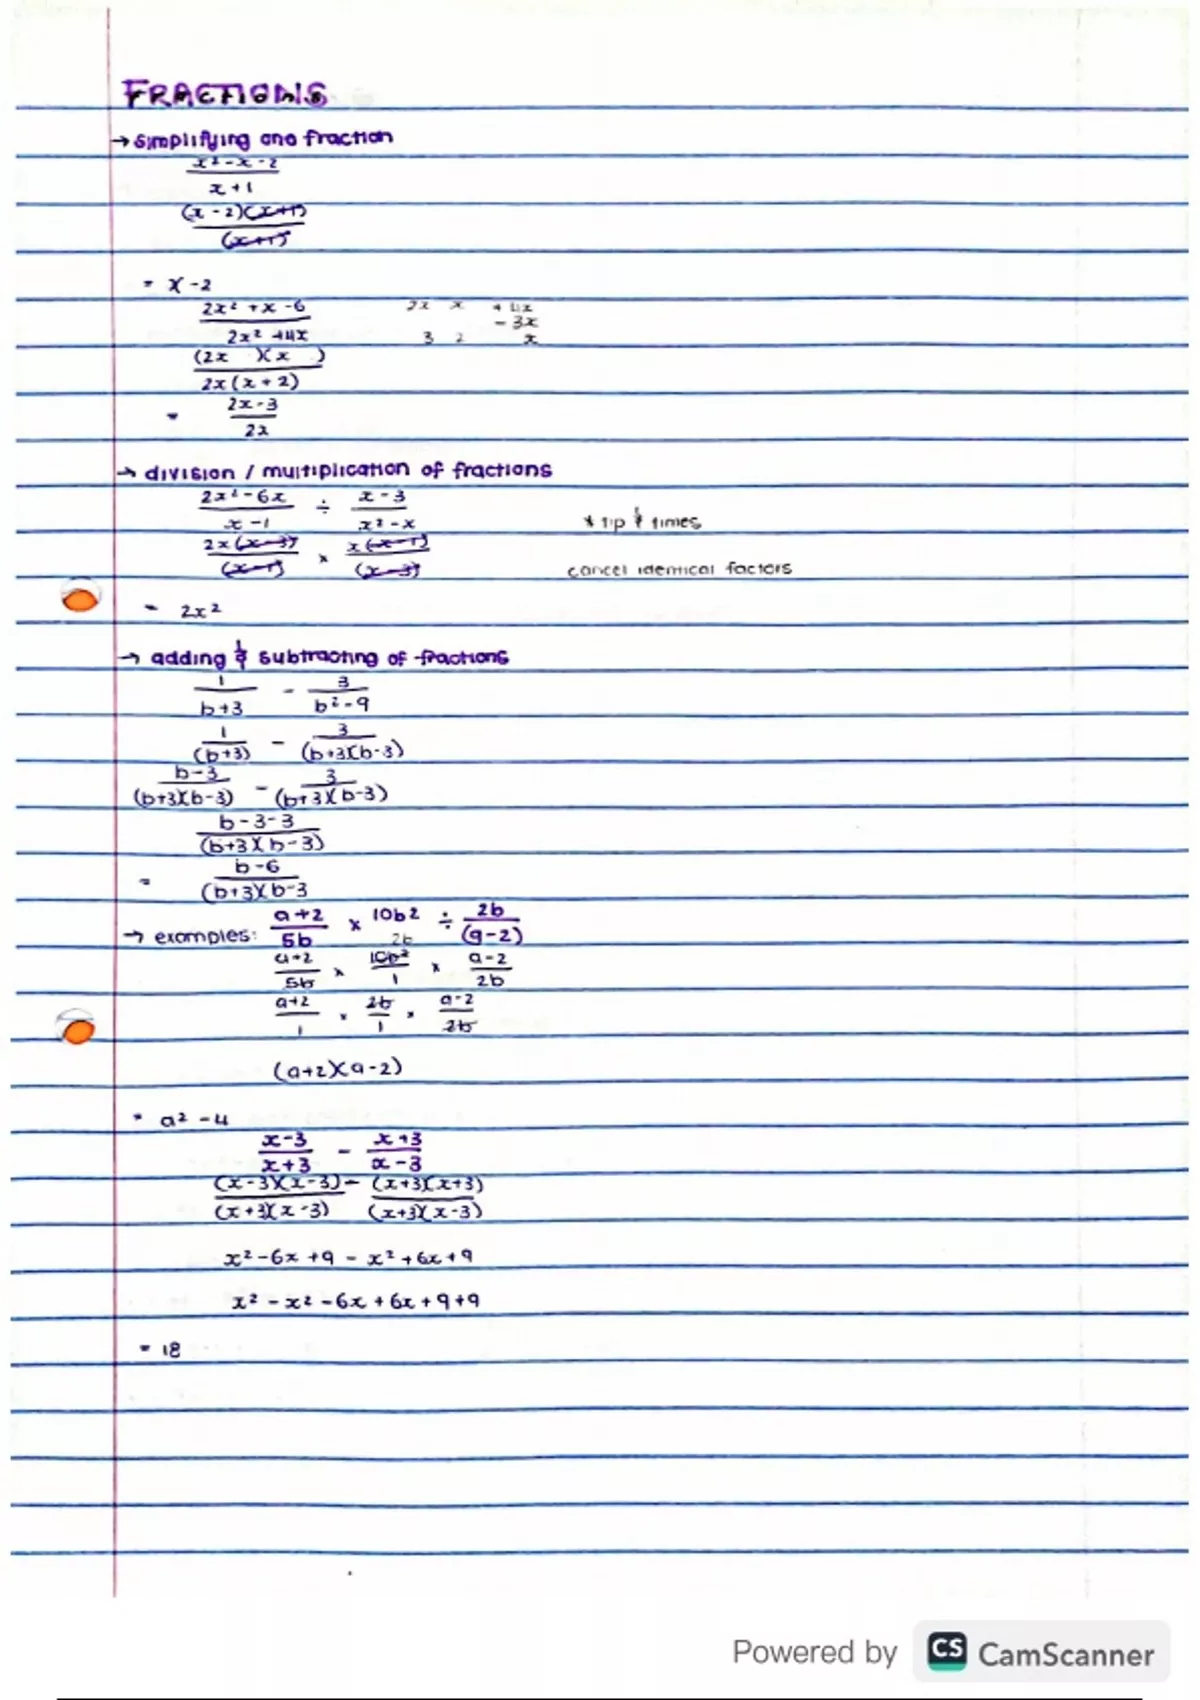 FRACTIONS
→ simplifying one fraction
x² - x - 2
x + 1
(x - 2)(x+1)
(x+1)
= x - 2
2x² + x - 6 2x x + 4x
- 3x
2x² + 4x 3 2 x
(2x )(x )
2x(x + 2)
= 2x - 3
2x
→ division / multiplication of fractions
2x² - 6x ÷ x - 3
x - 1 x² - x * tip & times
2x(x - 3) × x(x - 1)
(x - 1) (x - 3) cancel identical factors
= 2x²
→ adding & subtracting of fractions
1 - 3
b+3 b² - 9
1 - 3
(b+3) (b+3)(b-3)
b-3 - 3
(b+3)(b-3) (b+3)(b-3)
b - 3 - 3
(b+3)(b-3)
= b - 6
(b+3)(b-3
→ examples: a+2 × 10b2 ÷ 2b
5b 2b (a-2)
a+2 × 10b² × a-2
5b 1 2b
a+2 × 2b × a-2
1 1 2b
(a+2)(a-2)
= a² - 4
x-3 - x+3
x+3 x-3
(x-3)(x-3) - (x+3)(x+3)
(x+3)(x-3) (x+3)(x-3)
x² - 6x + 9 - x² + 6x + 9
x² - x² - 6x + 6x + 9 + 9
= 18
Powered by CS CamScanner